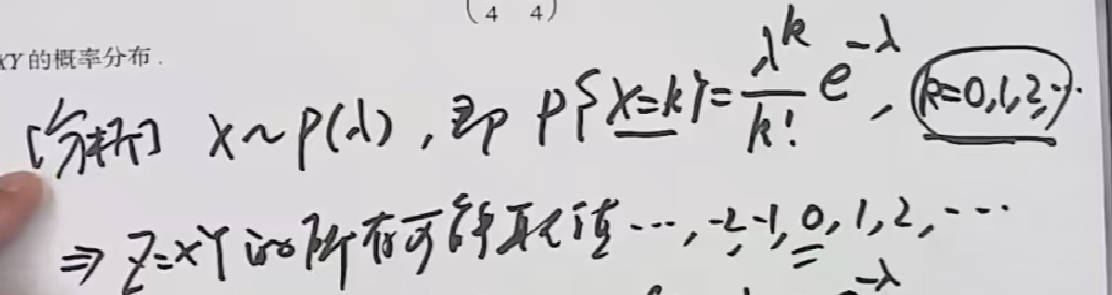 ( 4 4 )
XY 的概率分布.
[分析] X~P(λ), 即 P{X=k}=λ^k/k! e^-λ, (k=0,1,2,…).
⇒ Z=XY 的所有可能取值…,-2,-1,0,1,2,…
-λ